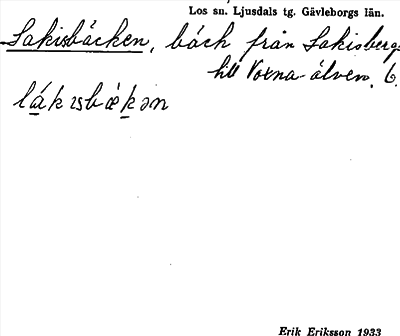 Los sn. Ljusdals tg. Gävleborgs län.
Lakisbäcken, bäck från Lakisberg
till Voxna-älven. 6.
lákısbǽkən
Erik Eriksson 1933